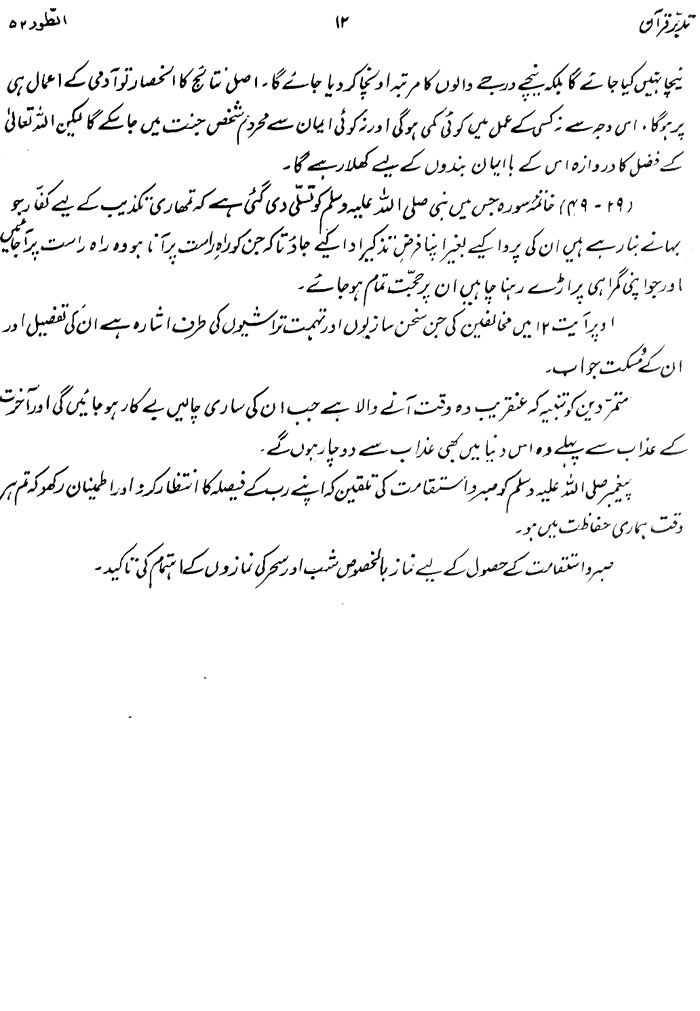 تدبّرِ قرآن ۱۲ الطّور ۵۲
نیچا نہیں کیا جائے گا بلکہ نیچے درجے والوں کا مرتبہ اونچا کر دیا جائے گا۔ اصل نتائج کا انحصار تو آدمی کے اعمال ہی
پر ہو گا، اس وجہ سے نہ کسی کے عمل میں کوئی کمی ہوگی اور نہ کوئی ایمان سے محروم شخص جنت میں جا سکے گا لیکن اللہ تعالیٰ
کے فضل کا دروازہ اس کے باایمان بندوں کے لیے کھلا رہے گا۔
(۲۹ - ۴۹) خاتمۂ سورہ جس میں نبی صلی اللہ علیہ وسلم کو تسلّی دی گئی ہے کہ تمھاری تکذیب کے لیے کفّار جو
بہانے بنا رہے ہیں ان کی پروا کیے بغیر اپنا فرض تذکیر ادا کیے جاؤ تاکہ جن کو راہِ راست پر آنا ہو وہ راہ راست پر آجائیں
اور جو اپنی گمراہی پر اڑے رہنا چاہیں ان پر حجّت تمام ہو جائے۔
اوپر آیت ۱۲ میں مخالفین کی جن سخن سازیوں اور تہمت تراشیوں کی طرف اشارہ ہے ان کی تفصیل اور
ان کے مُسکت جواب۔
متمرّدین کو تنبیہ کہ عنقریب وہ وقت آنے والا ہے جب ان کی ساری چالیں بے کار ہو جائیں گی اور آخرت
کے عذاب سے پہلے وہ اس دنیا میں بھی عذاب سے دوچار ہوں گے۔
پیغمبر صلی اللہ علیہ وسلم کو صبر و استقامت کی تلقین کہ اپنے رب کے فیصلہ کا انتظار کرو اور اطمینان رکھو کہ تم ہر
وقت ہماری حفاظت میں ہو۔
صبر و استقامت کے حصول کے لیے نماز بالخصوص شب اور سحر کی نمازوں کے اہتمام کی تاکید۔